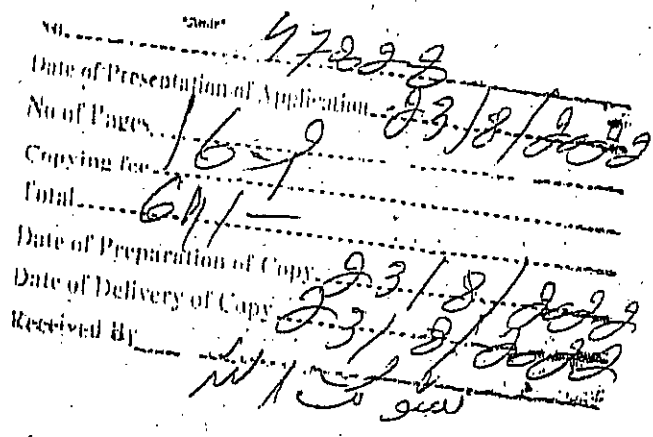 No. 47228
Date of Presentation of Application 23/8/2022
No of Pages 16-
Copying fee
Total 64/-
Date of Preparation of Copy 23/8/2022
Date of Delivery of Copy 23/8/2022
Received By